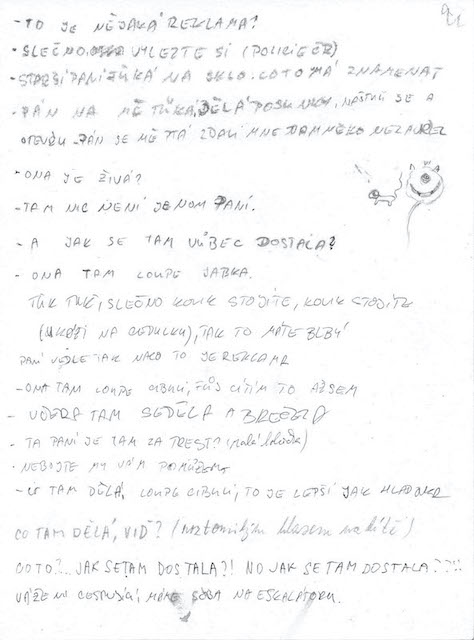 - TO JE NĚJAKÁ REKLAMA?
- SLEČNO, VYLEZTE SI (POLICIE ČR)
- STARŠÍ PANÍ ŤUKÁ NA SKLO. CO TO MÁ ZNAMENAT
- PÁN NA MĚ ŤUKÁ, DĚLÁ POSUNKY, NAŠTVE SE A
PÁN SE MĚ PTÁ ZDALI MNE TAM NĚKO NEZAVŘEL
- ONA JE ŽIVÁ?
- TAM NIC NENÍ JENOM PANÍ.
- A JAK SE TAM VŮBEC DOSTALA?
- ONA TAM LOUPE JABKA.
ŤUK ŤUK, SLEČNO KOLIK STOJÍTE, KOLIK STOJÍTE
(UKÁŽI NA CEDULKU), TAK TO MÁTE BLBÝ
PANÍ VEDLE TAK NAKO TO JE REKLAMA
- ONA TAM LOUPE CIBULI, FŮJ CÍTÍM TO AŽ SEM
- VČERA TAM SEDĚLA A BREČELA
- TA PANÍ JE TAM ZA TREST? (malá holčička)
- NEBOJTE MY VÁM POMŮŽEMY
- CO TAM DĚLÁ, LOUPE CIBULI, TO JE LEPŠÍ JAK HLADOVKA
CO TAM DĚLÁ, VIĎ? (roztomilým hlasem na dítě)
COTO?.. JAK SE TAM DOSTALA?! NO JAK SE TAM DOSTALA??!!
VÁŽENÍ CESTUJÍCÍ, MÁME SEBA NA ESKALÁTORU.